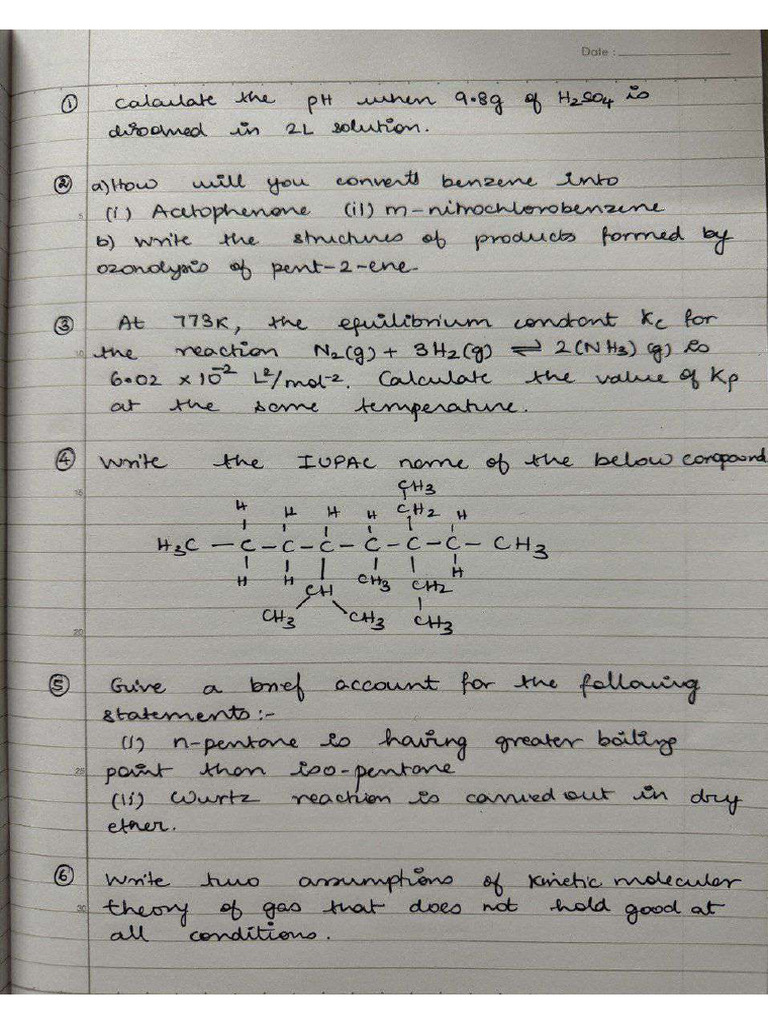 Date :
① Calculate the pH when 9.8g of H₂SO₄ is
dissolved in 2L solution.
② a) How will you convert benzene into
(i) Acetophenone (ii) m-nitrochlorobenzene
b) Write the structures of products formed by
ozonolysis of pent-2-ene.
③ At 773K, the equilibrium constant Kc for
the reaction N₂(g) + 3H₂(g) ⇌ 2(NH₃) (g) is
6.02 × 10⁻² L²/mol⁻². Calculate the value of Kp
at the same temperature.
④ Write the IUPAC name of the below compound
CH₃
H H H H CH₂ H
H₃C - C - C - C - C - C - C - CH₃
H H CH CH₃ CH₂ H
CH₃ CH₃ CH₃
⑤ Give a brief account for the following
statements:-
(i) n-pentane is having greater boiling
point than iso-pentane
(ii) Wurtz reaction is carried out in dry
ether.
⑥ Write two assumptions of kinetic molecular
theory of gas that does not hold good at
all conditions.
5
10
15
20
25
30